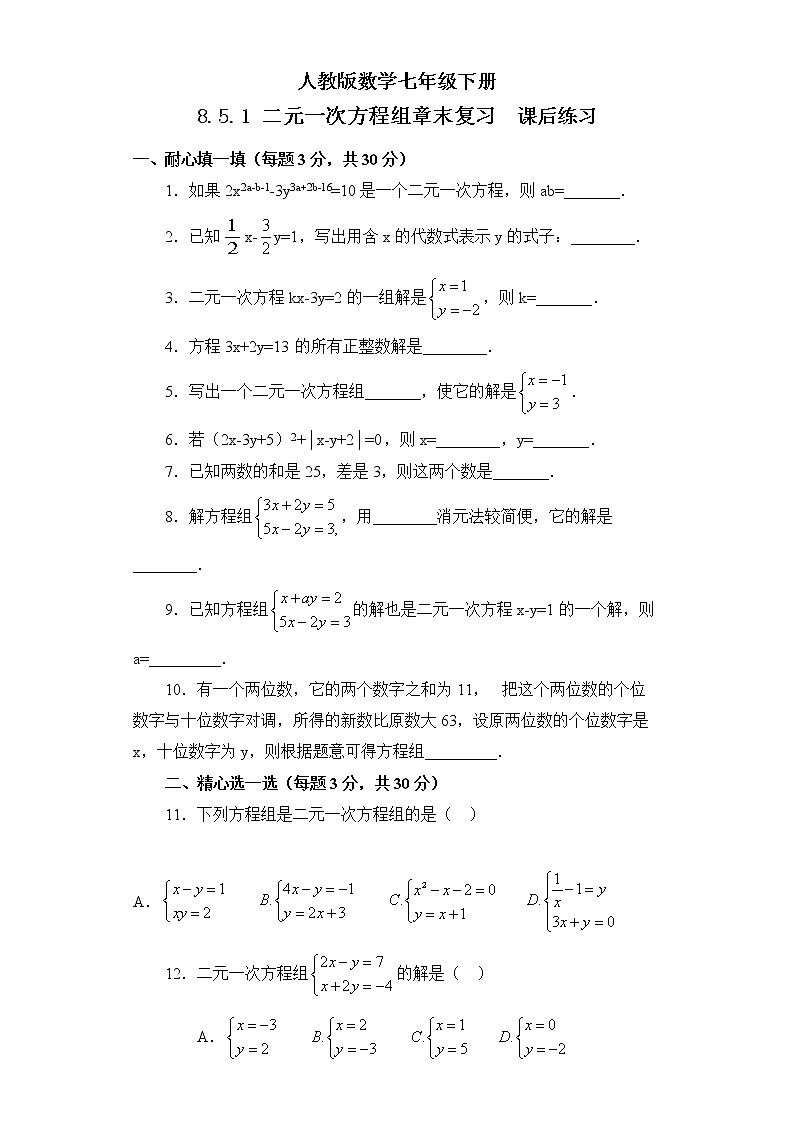 人教版数学七年级下册
8.5.1 二元一次方程组章末复习 课后练习
一、耐心填一填（每题3分，共30分）
1．如果2x^{2a-b-1}-3y^{3a+2b-16}=10是一个二元一次方程，则ab=_______．
2．已知\frac{1}{2}x-\frac{3}{2}y=1，写出用含x的代数式表示y的式子：________．
3．二元一次方程kx-3y=2的一组解是\begin{cases}x=1\\y=-2\end{cases}，则k=_______．
4．方程3x+2y=13的所有正整数解是________．
5．写出一个二元一次方程组_______，使它的解是\begin{cases}x=-1\\y=3\end{cases}．
6．若（2x-3y+5）²+│x-y+2│=0，则x=________，y=_______．
7．已知两数的和是25，差是3，则这两个数是_______．
8．解方程组\begin{cases}3x+2y=5\\5x-2y=3,\end{cases}，用________消元法较简便，它的解是
________．
9．已知方程组\begin{cases}x+ay=2\\5x-2y=3\end{cases}的解也是二元一次方程x-y=1的一个解，则
a=_________．
10．有一个两位数，它的两个数字之和为11， 把这个两位数的个位
数字与十位数字对调，所得的新数比原数大63，设原两位数的个位数字是
x，十位数字为y，则根据题意可得方程组_________．
二、精心选一选（每题3分，共30分）
11．下列方程组是二元一次方程组的是（ ）
A．\begin{cases}x-y=1\\xy=2\end{cases} B.\begin{cases}4x-y=-1\\y=2x+3\end{cases} C.\begin{cases}x^2-x-2=0\\y=x+1\end{cases} D.\begin{cases}\frac{1}{x}-1=y\\3x+y=0\end{cases}
12．二元一次方程组\begin{cases}2x-y=7\\x+2y=-4\end{cases}的解是（ ）
A．\begin{cases}x=-3\\y=2\end{cases} B.\begin{cases}x=2\\y=-3\end{cases} C.\begin{cases}x=1\\y=5\end{cases} D.\begin{cases}x=0\\y=-2\end{cases}